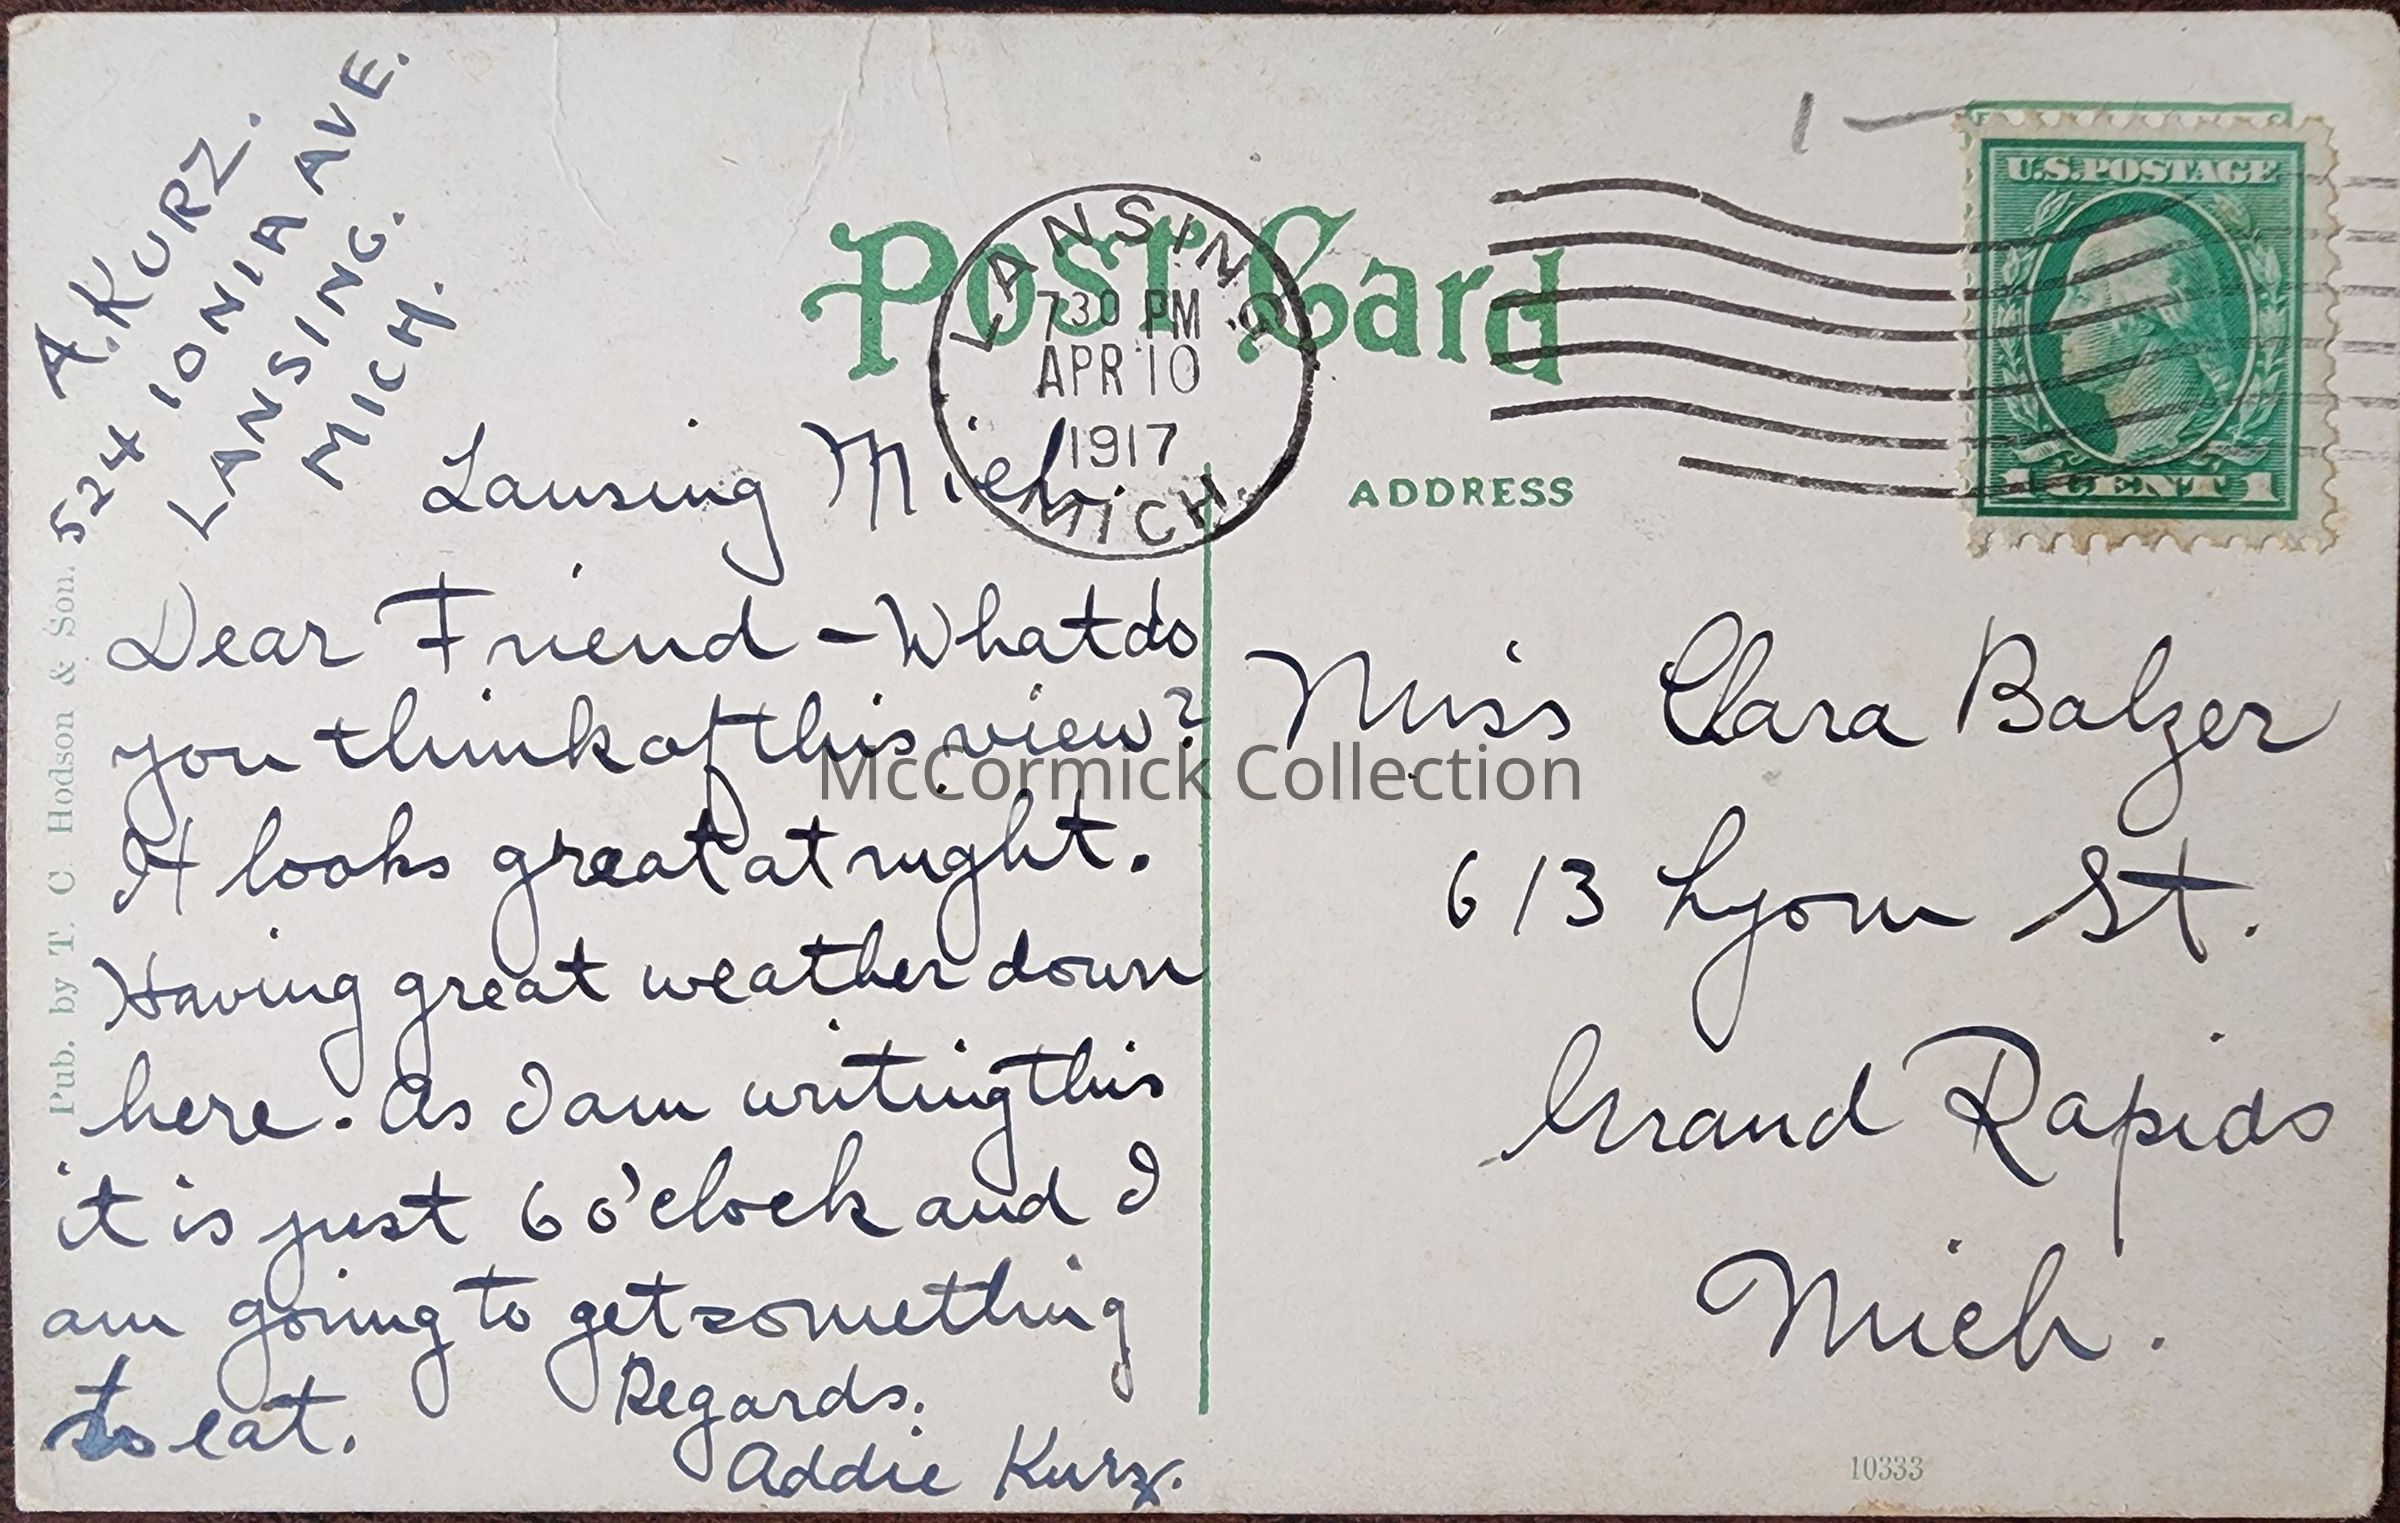 A. KURZ.
524 IONIA AVE.
LANSING.
MICH.
Post Card
LANSING
730 PM
APR 10
1917
MICH.
U.S. POSTAGE
1 CENT 1
1 —
ADDRESS
Lansing Mich.
Dear Friend – What do
you think of this view?
It looks great at night.
Having great weather down
here. As I am writing this
it is just 6 o'clock and I
am going to get something
to eat.
Regards.
Addie Kurz.
Miss Clara Balzer
613 Lyon St.
Grand Rapids
Mich.
Pub. by T. C. Hodson & Son.
10333
McCormick Collection